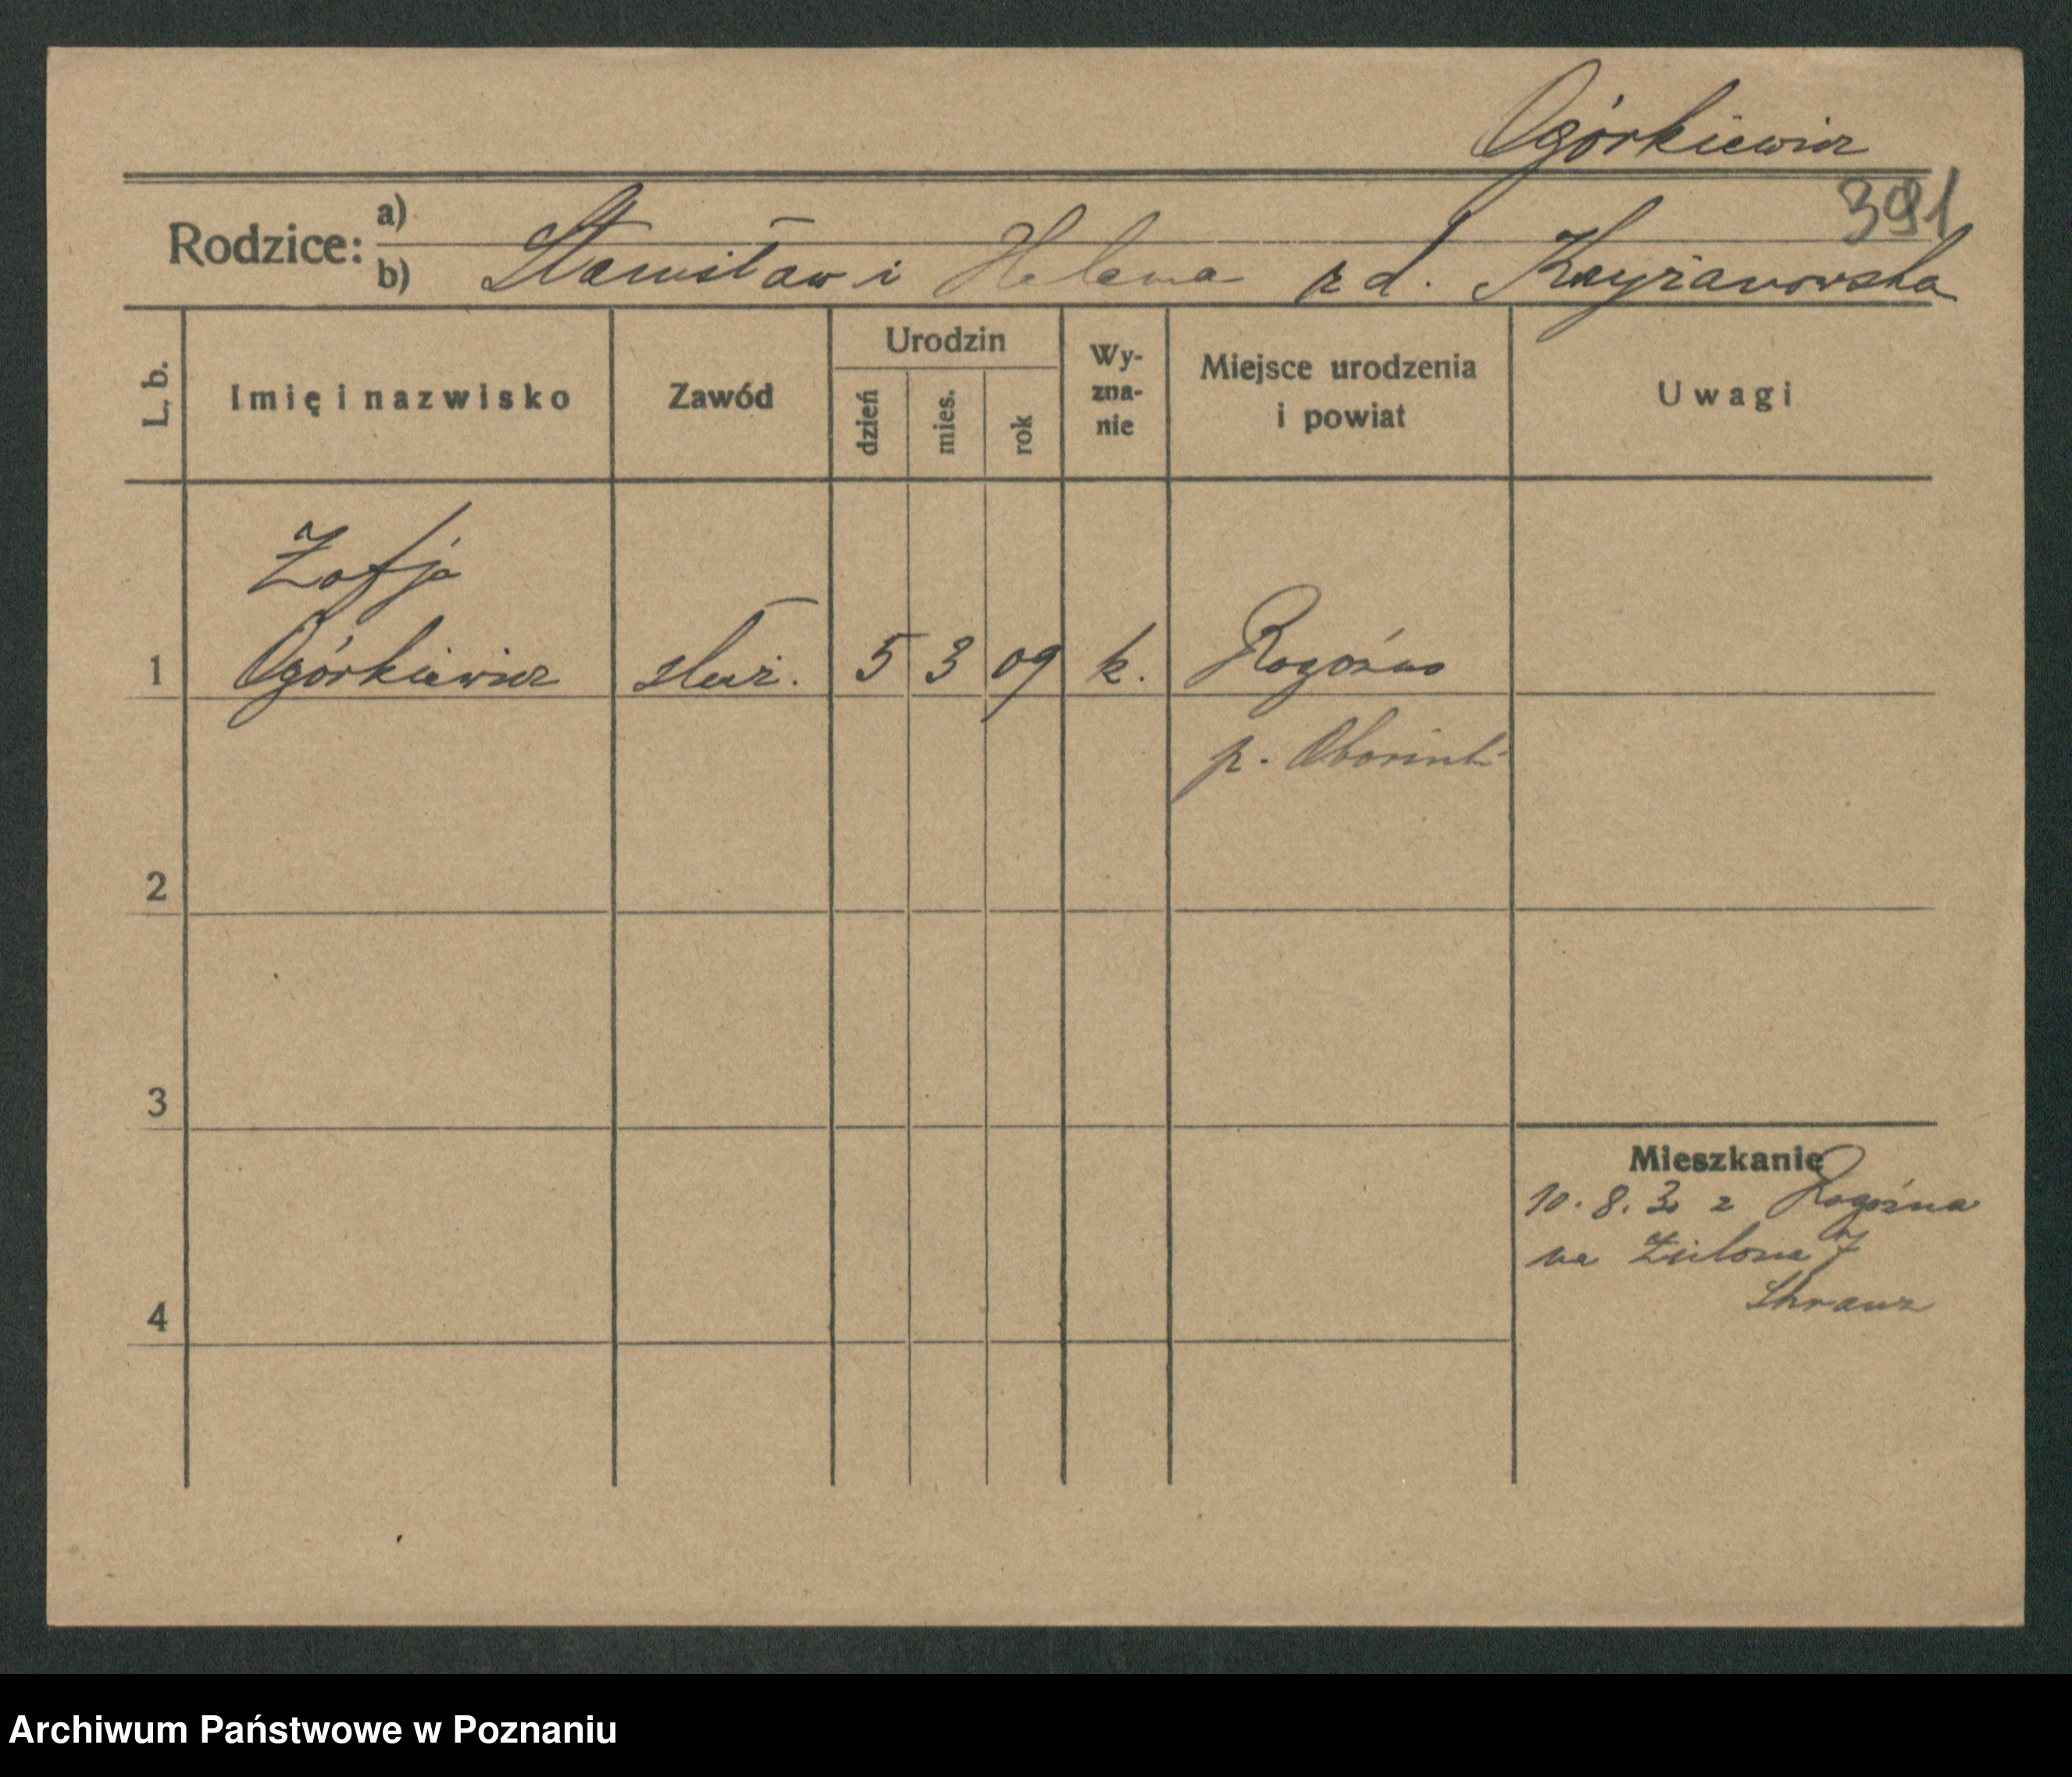 Ogórkiewicz
391
Rodzice: a)
b) Stanisław i Helena z d. Krzyżanowska
L. b.
Imię i nazwisko
Zawód
Urodzin
dzień
mies.
rok
Wy-
zna-
nie
Miejsce urodzenia
i powiat
Uwagi
Zofja
1 Ogórkiewicz służ. 5 3 09 k. Rogoźno
p. Obornik
2
3
Mieszkanie
10.8.30 z Rogoźna
na Zielona 7
4
Archiwum Państwowe w Poznaniu